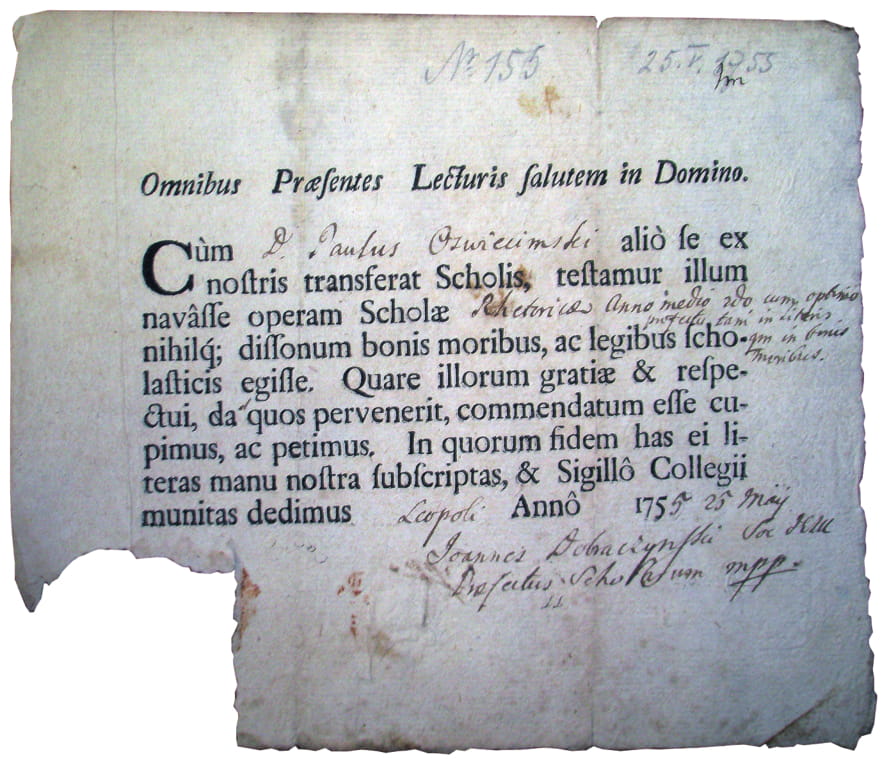 Nr. 155 25.V. 1755
Omnibus Præsentes Lecturis ſalutem in Domino.
Cùm D. Paulus Oswiecimski aliò ſe ex
noſtris transferat Scholis, teſtamur illum
navâſſe operam Scholæ Rhetoricæ Anno medio 2do cum optimo
profectu tam in literis
nihilq́; diſſonum bonis moribus, ac legibus ſcho-
qm in bonis
moribus.
laſticis egiſſe. Quare illorum gratiæ & reſpe-
ctui, da quos pervenerit, commendatum eſſe cu-
pimus, ac petimus. In quorum fidem has ei li-
teras manu noſtra ſubſcriptas, & Sigillô Collegii
munitas dedimus Leopoli Annô 1755 25 Maij
Joannes Dobraczynſki Soc JESU
Præfectus Scholarum mpp.